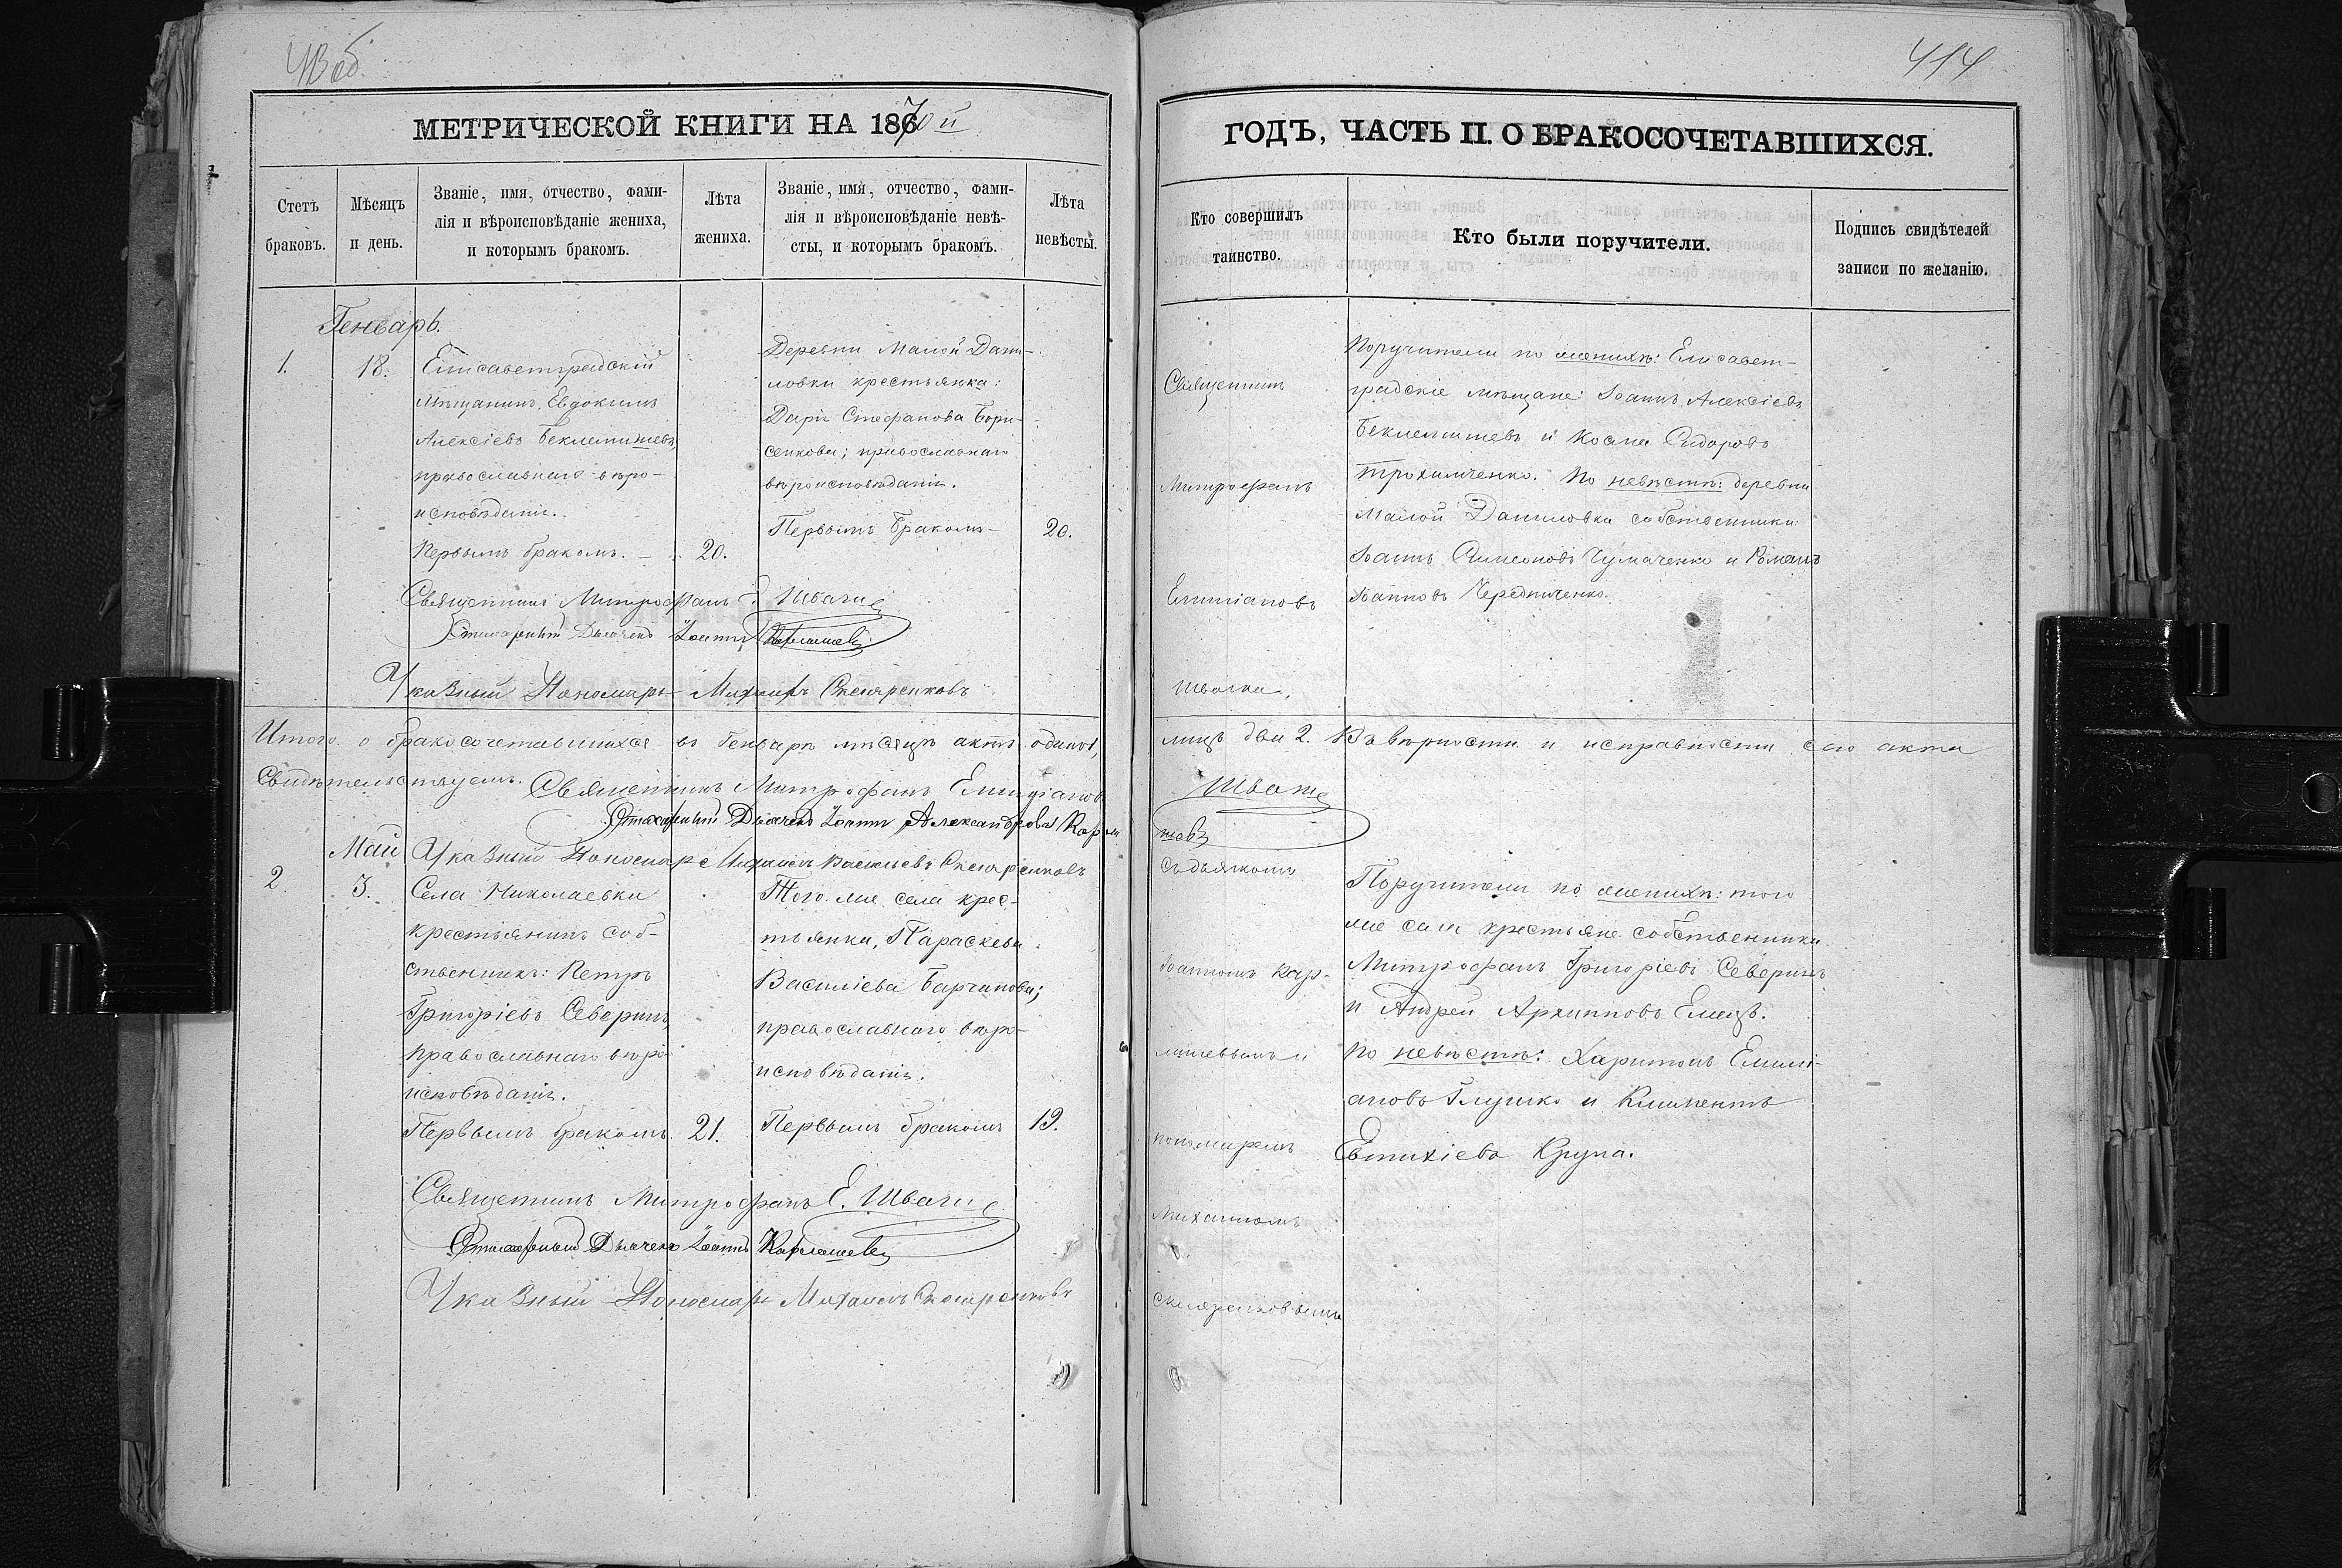 413 об.
МЕТРИЧЕСКОЙ КНИГИ НА 1870 й
Счетъ
браковъ.
Мѣсяцъ
и день.
Званіе, имя, отчество, фами-
лія и вѣроисповѣданіе жениха,
и которымъ бракомъ.
Лѣта
жениха.
Званіе, имя, отчество, фами-
лія и вѣроисповѣданіе невѣ-
сты, и которымъ бракомъ.
Лѣта
невѣсты.
Генварь.
1.
18.
Елисаветградскій
мѣщанинъ, Евдокимъ
Алексіевъ Беклемишевъ,
православнаго вѣро-
исповѣданія.
Первымъ бракомъ.
20.
Деревни Малой Дани-
ловки крестьянка:
Дарія Стефанова Бори-
сенкова; православнаго
вѣроисповѣданія.
Первымъ бракомъ
20.
Священникъ Митрофанъ Е. Швачка
Дьячекъ Іоаннъ Карлашевъ
Указный Пономарь Михаилъ Скляренковъ
Итого о бракосочетавшихся въ Генварѣ мѣсяцѣ актъ одинъ,
Свидѣтельствуемъ. Священникъ Митрофанъ Емиліановъ
Дьячекъ Іоаннъ Александровъ Карла
Указный Пономарь Михаилъ Васильевъ Скляренковъ
Май
2.
3.
Села Николаевки
крестьянинъ соб-
ственникъ: Петръ
Григоріевъ Северинъ,
православнаго вѣро-
исповѣданія.
Первымъ бракомъ.
21.
Того же села крес-
тьянка, Параскева
Василіева Барчанова;
православнаго вѣро-
исповѣданія.
Первымъ бракомъ
19.
Священникъ Митрофанъ Е. Швачка
Дьячекъ Іоаннъ Карлашевъ
Указный Пономарь Михаилъ Скляренковъ
414
ГОДЪ, ЧАСТЬ II. О БРАКОСОЧЕТАВШИХСЯ.
Кто совершилъ
таинство.
Кто были поручители.
Подпись свидѣтелей
записи по желанію.
Священникъ
Митрофанъ
Емиліановъ
Швачка.
Поручители по женихѣ: Елисавет-
градскіе мѣщане: Іоаннъ Алексіевъ
Беклемишевъ и Косма Сидоровъ
Трохимченко. По невѣстѣ: деревни
Малой Даниловки собственники:
Іоаннъ Симеоновъ Чумаченко и Романъ
Іоанновъ Чередниченко.
лицъ два 2. Въ вѣрности и исправности сего акта
Швачка
шевъ
съ дьячкомъ
Іоанномъ Кар-
лашевымъ и
пономаремъ
Михаиломъ
Скляренковымъ
Поручители по женихѣ: того
же села крестьяне собственники
Митрофанъ Григоріевъ Северинъ
и Андрей Архиповъ Емецъ.
по невѣстѣ: Харитонъ Емилі-
ановъ Глушко и Климентъ
Евтихіевъ Крупа.